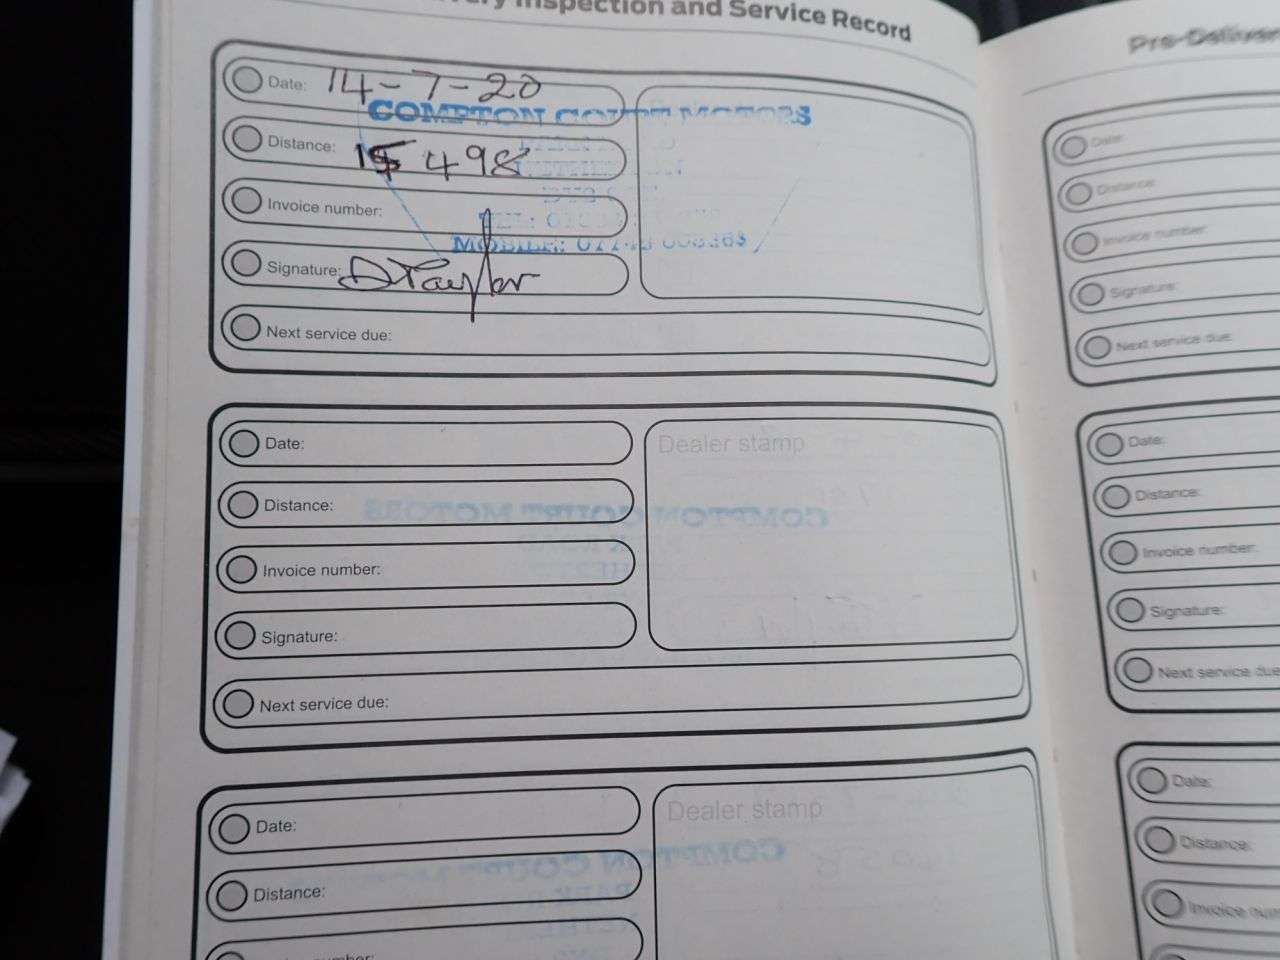 Inspection and Service Record
Date: 14-7-20
COMPTON COURT MOTORS
Distance: 15498
Invoice number:
MOBILE:
Signature: D Taylor
Next service due:
Date:
Dealer stamp
Distance:
COMPTON COURT MOTORS
Invoice number:
Signature:
Next service due:
Date:
Dealer stamp
COMPTON COURT
Distance:
number:
Pre-Deliver
Date:
Distance:
Invoice number:
Signature:
Next service due:
Date:
Distance:
Invoice number:
Signature:
Next service due
Date:
Distance:
Invoice num